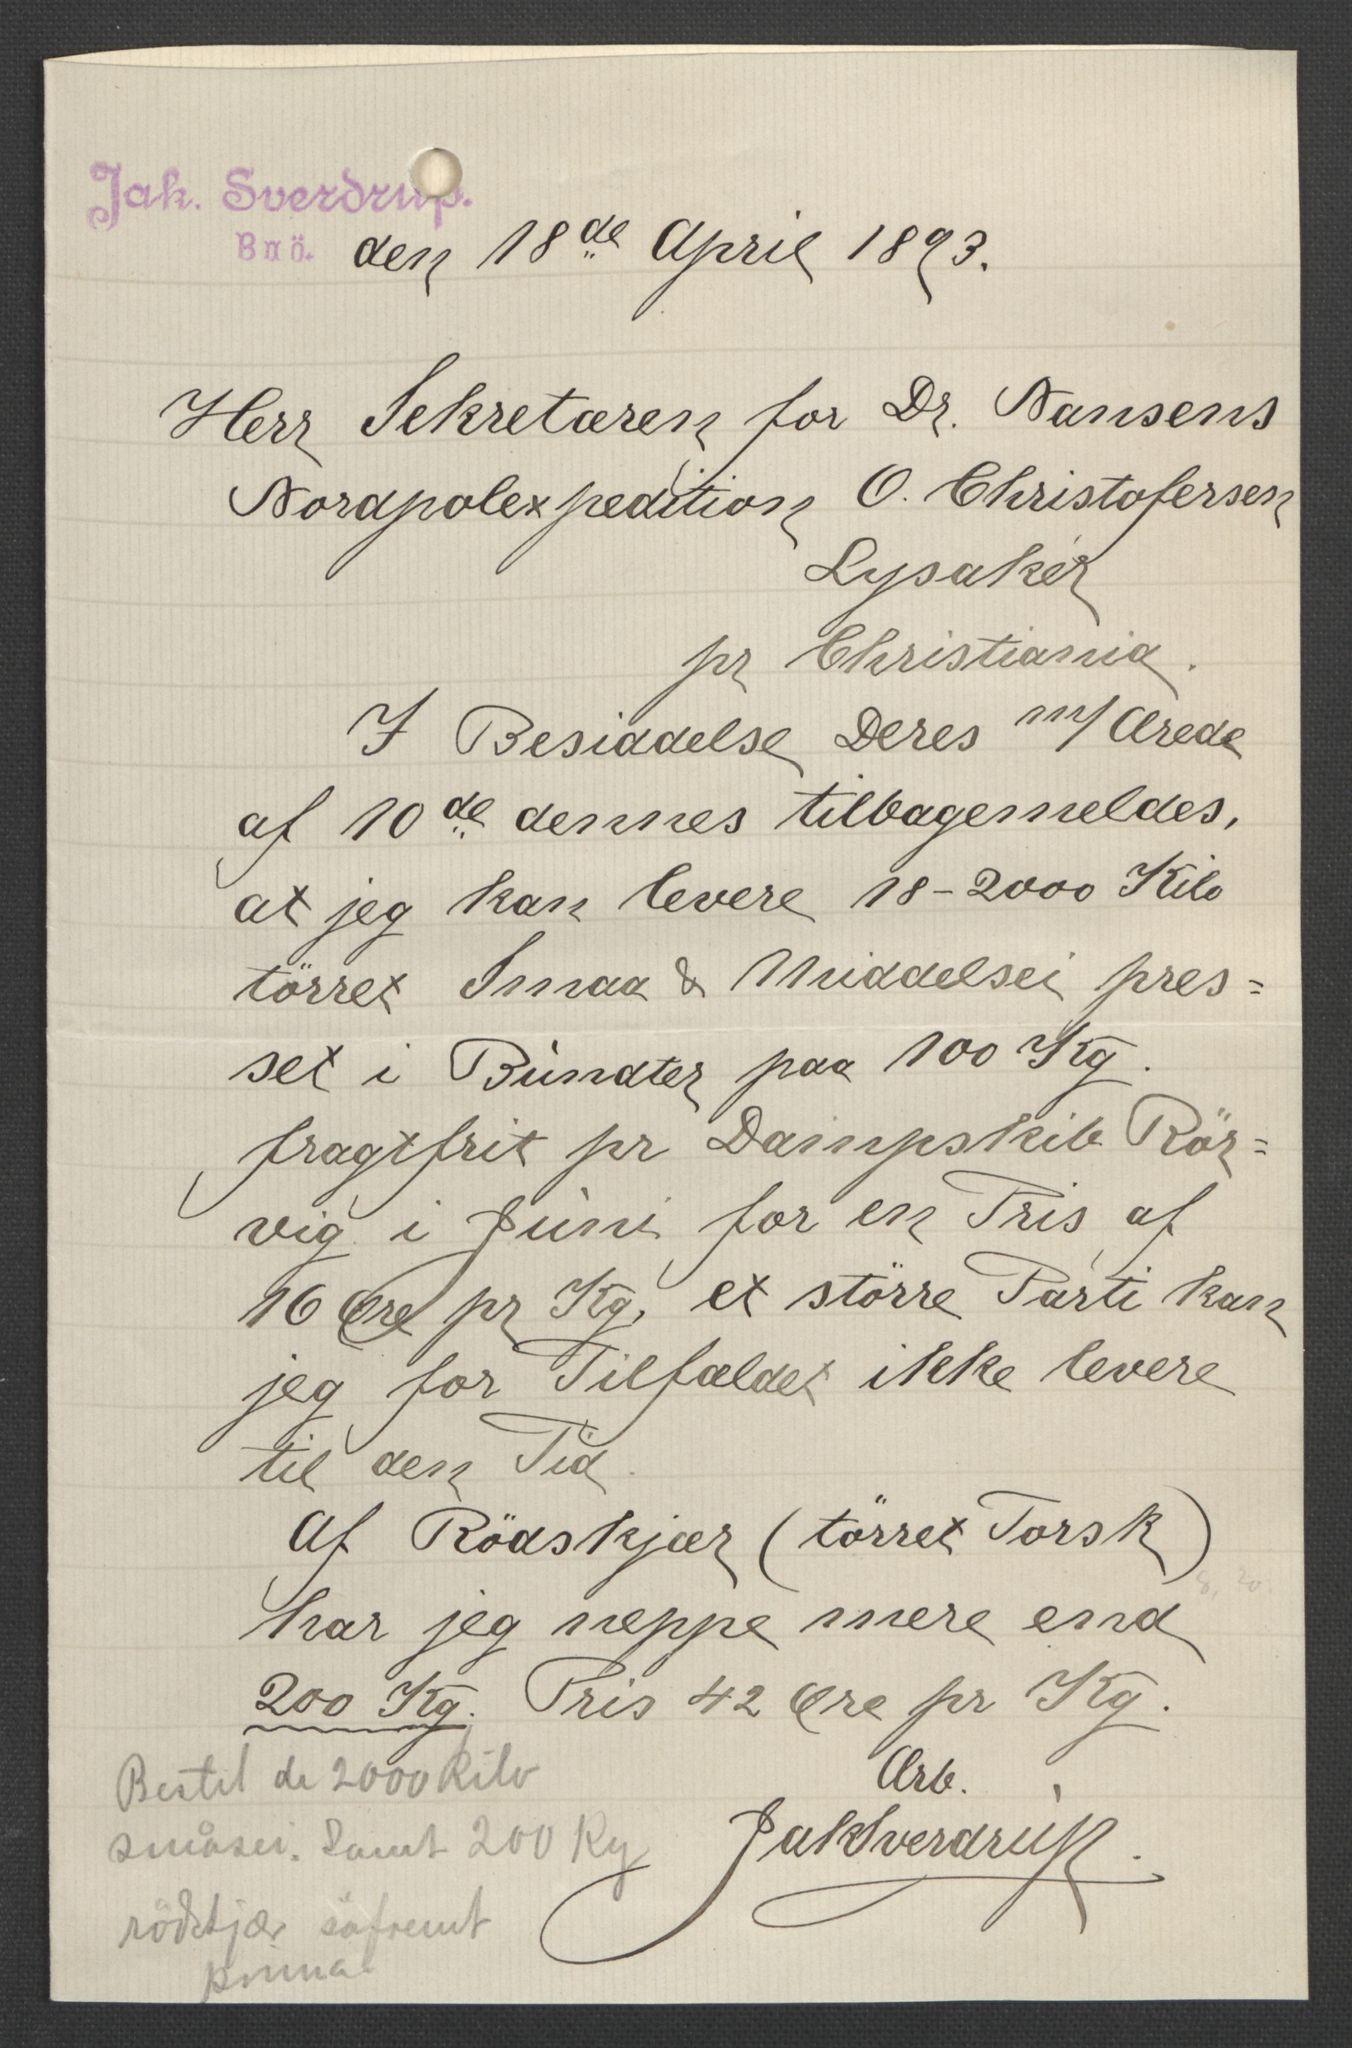 Jak. Sverdrup.
Buö. den 18de April 1893.
Herr Sekretæren for Dr. Nansens
Nordpolexpedition O. Christofersen
Lysaker
pr Christiania.
I Besiddelse Deres m/ Ærede
af 10de dennes tilbagemeldes,
at jeg kan levere 18-2000 Kilo
törret Smaa & Middelsei pres=
set i Bundter paa 100 Kg.
fragtfrit pr Dampskib Rör=
vig i Juni for en Pris af
16 Øre pr Kg, et större Parti kan
jeg for Tilfældet ikke levere
til den Tid.
Af Rödskjær (törret Torsk)
har jeg neppe mere end
200 Kg. Pris 42 Øre pr Kg.
Ærb.
Jak Sverdrup.
Bestil de 2000 Kilo
småsei. Samt 200 Kg
rödskjær såfremt
prima